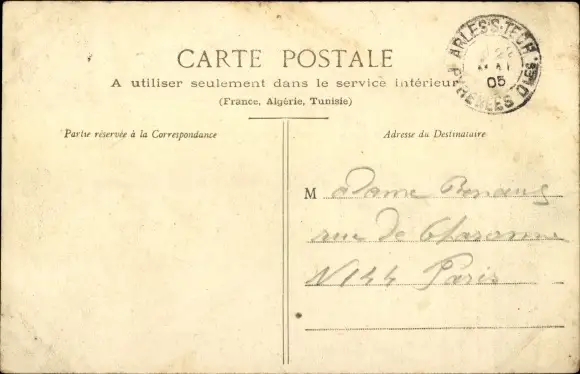 CARTE POSTALE
A utiliser seulement dans le service intérieur
(France, Algérie, Tunisie)
ARLES-S-TECH
05
PYRENEES Ories
Partie réservée à la Correspondance
Adresse du Destinataire
Madame
rue de Charonne
N 144 Paris